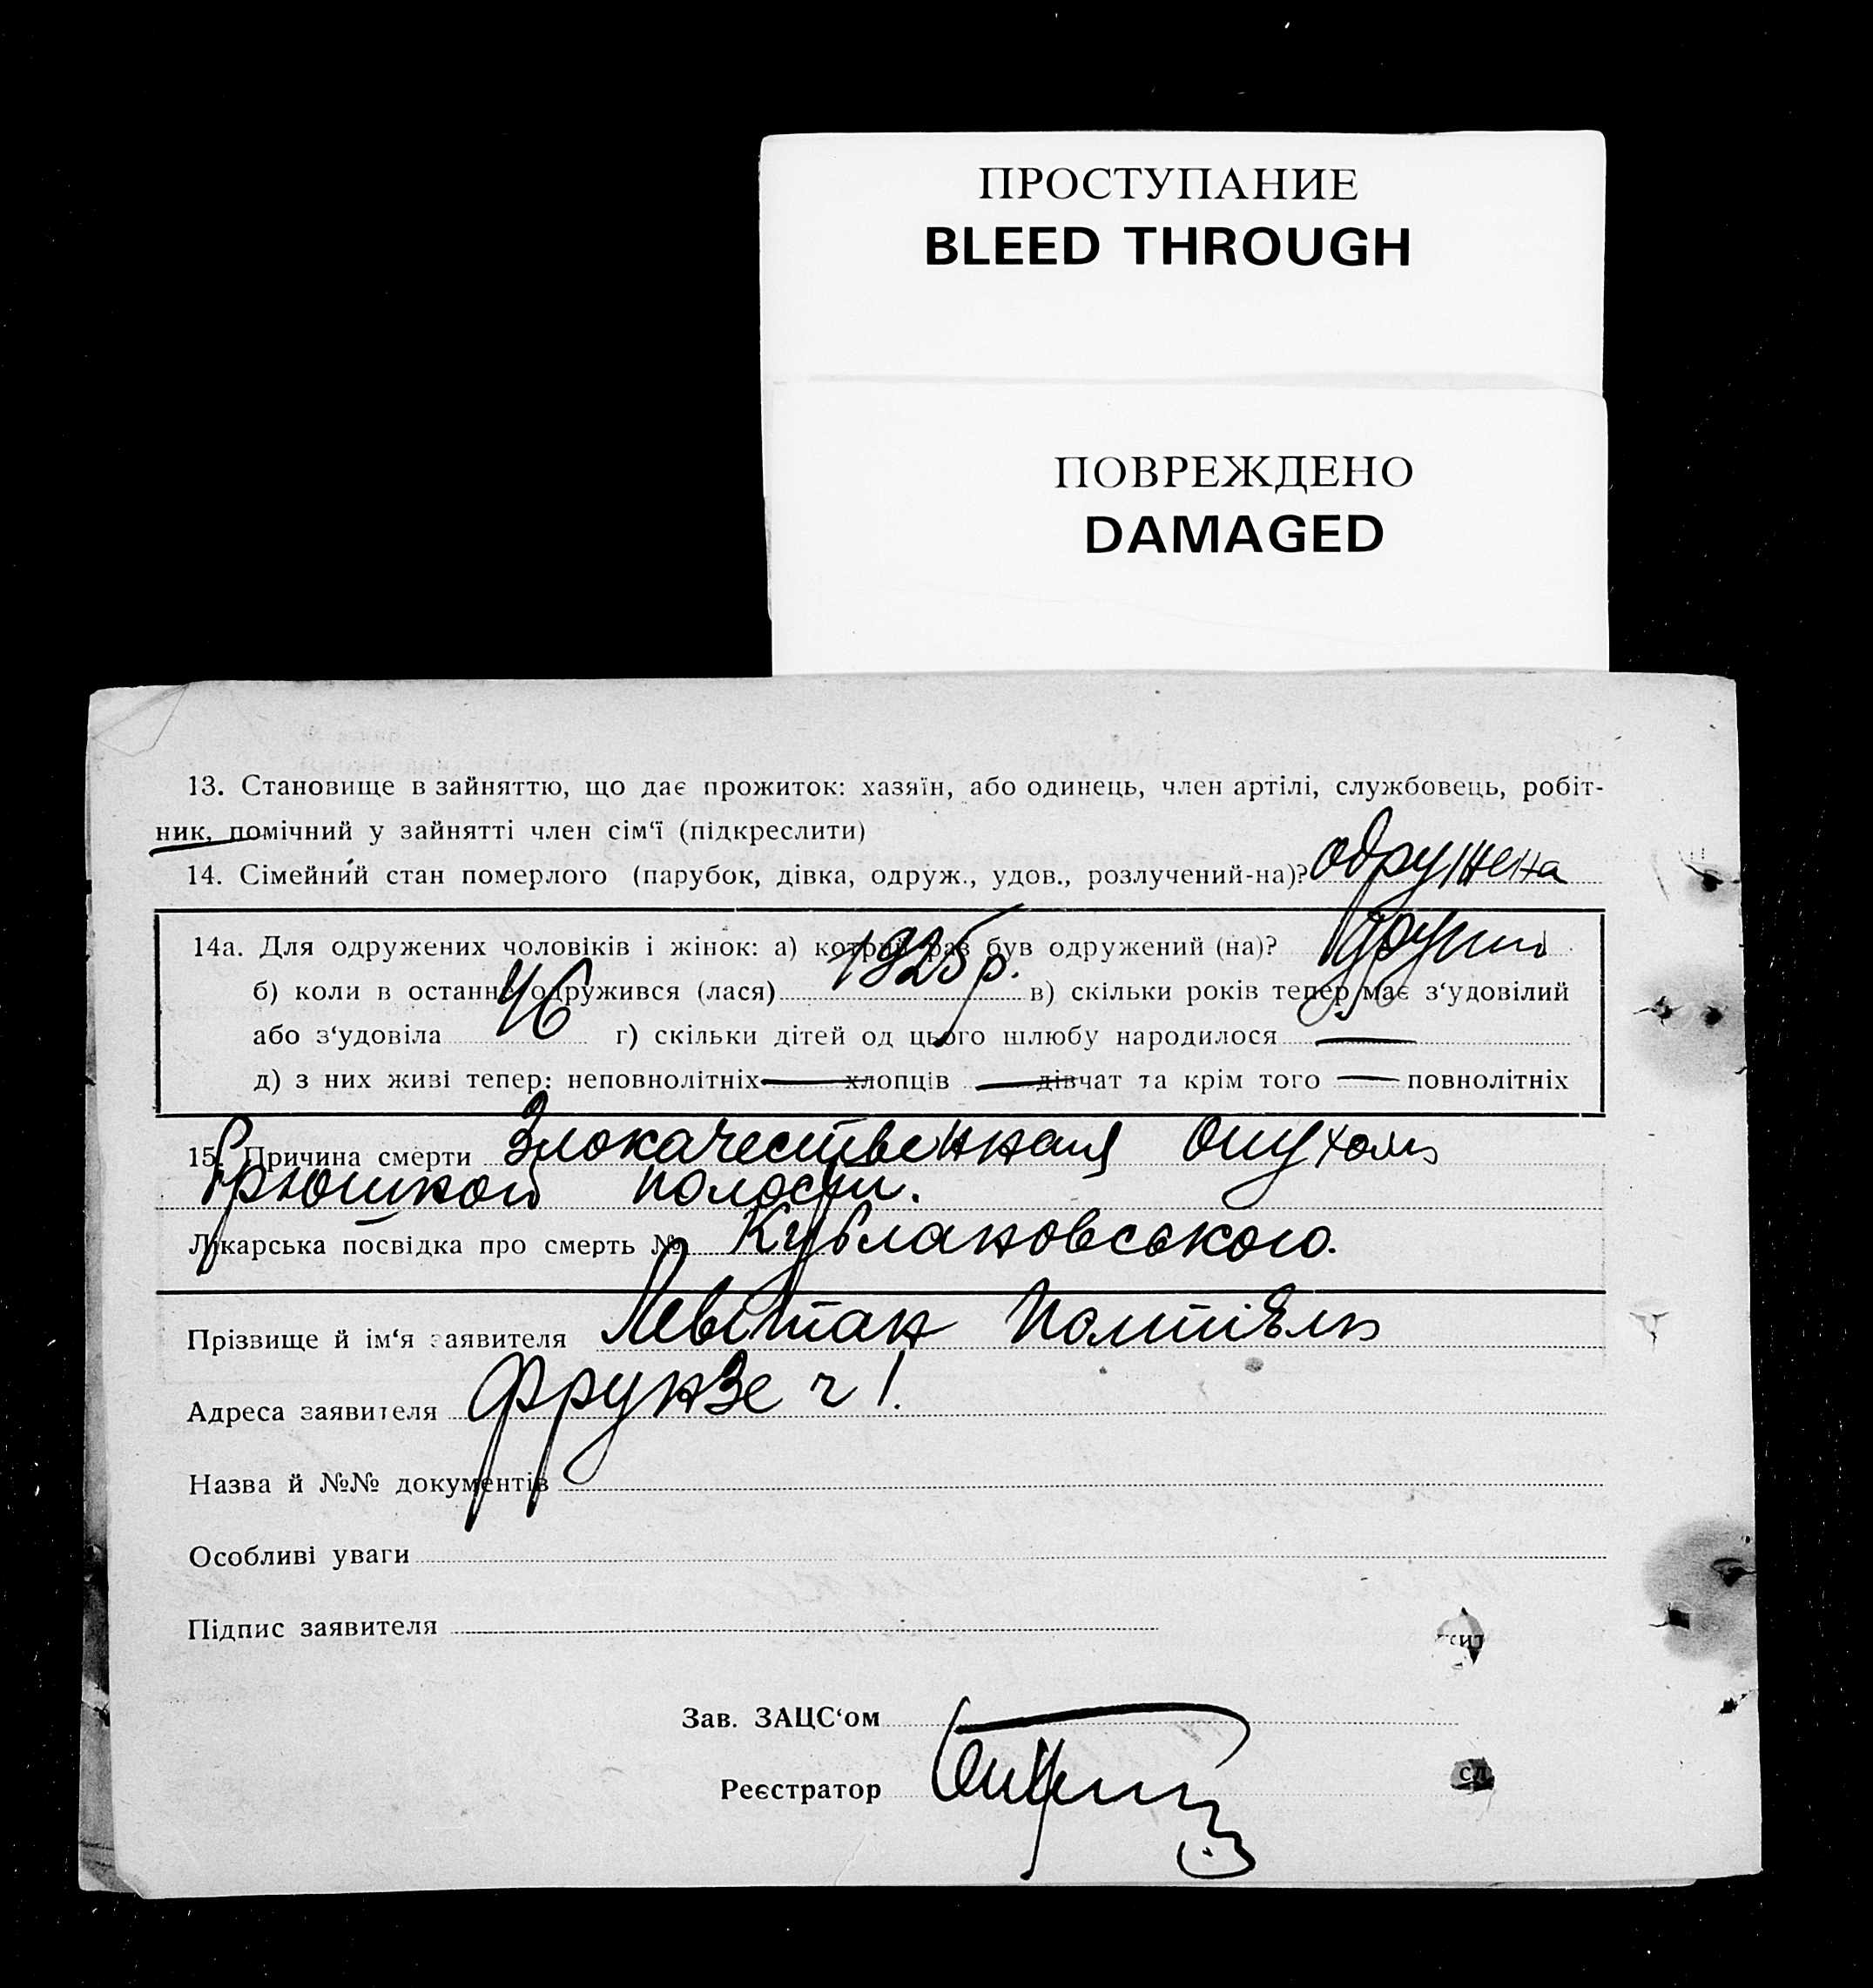 ПРОСТУПАНИЕ
BLEED THROUGH
ПОВРЕЖДЕНО
DAMAGED
13. Становище в зайняттю, що дає прожиток: хазяїн, або одинець, член артілі, службовець, робіт-
ник, помічний у зайнятті член сім‘ї (підкреслити)
14. Сімейний стан померлого (парубок, дівка, одруж., удов., розлучений-на)? одружена
14а. Для одружених чоловіків і жінок: а) котрий раз був одружений (на)? другий
б) коли в останнє одружився (лася) 1925 р. в) скільки років тепер має з‘удовілий
або з‘удовіла 46 г) скільки дітей од цього шлюбу народилося —
д) з них живі тепер: неповнолітніх — хлопців — дівчат та крім того — повнолітніх
15. Причина смерти Злокачественная опухоль
брюшной полости.
Лікарська посвідка про смерть № Кублановського.
Прізвище й ім‘я заявителя Левітан
Адреса заявителя Фрунзе ч 1.
Назва й №№ документів
Особливі уваги
Підпис заявителя
Зав. ЗАЦС‘ом
Реєстратор
сл